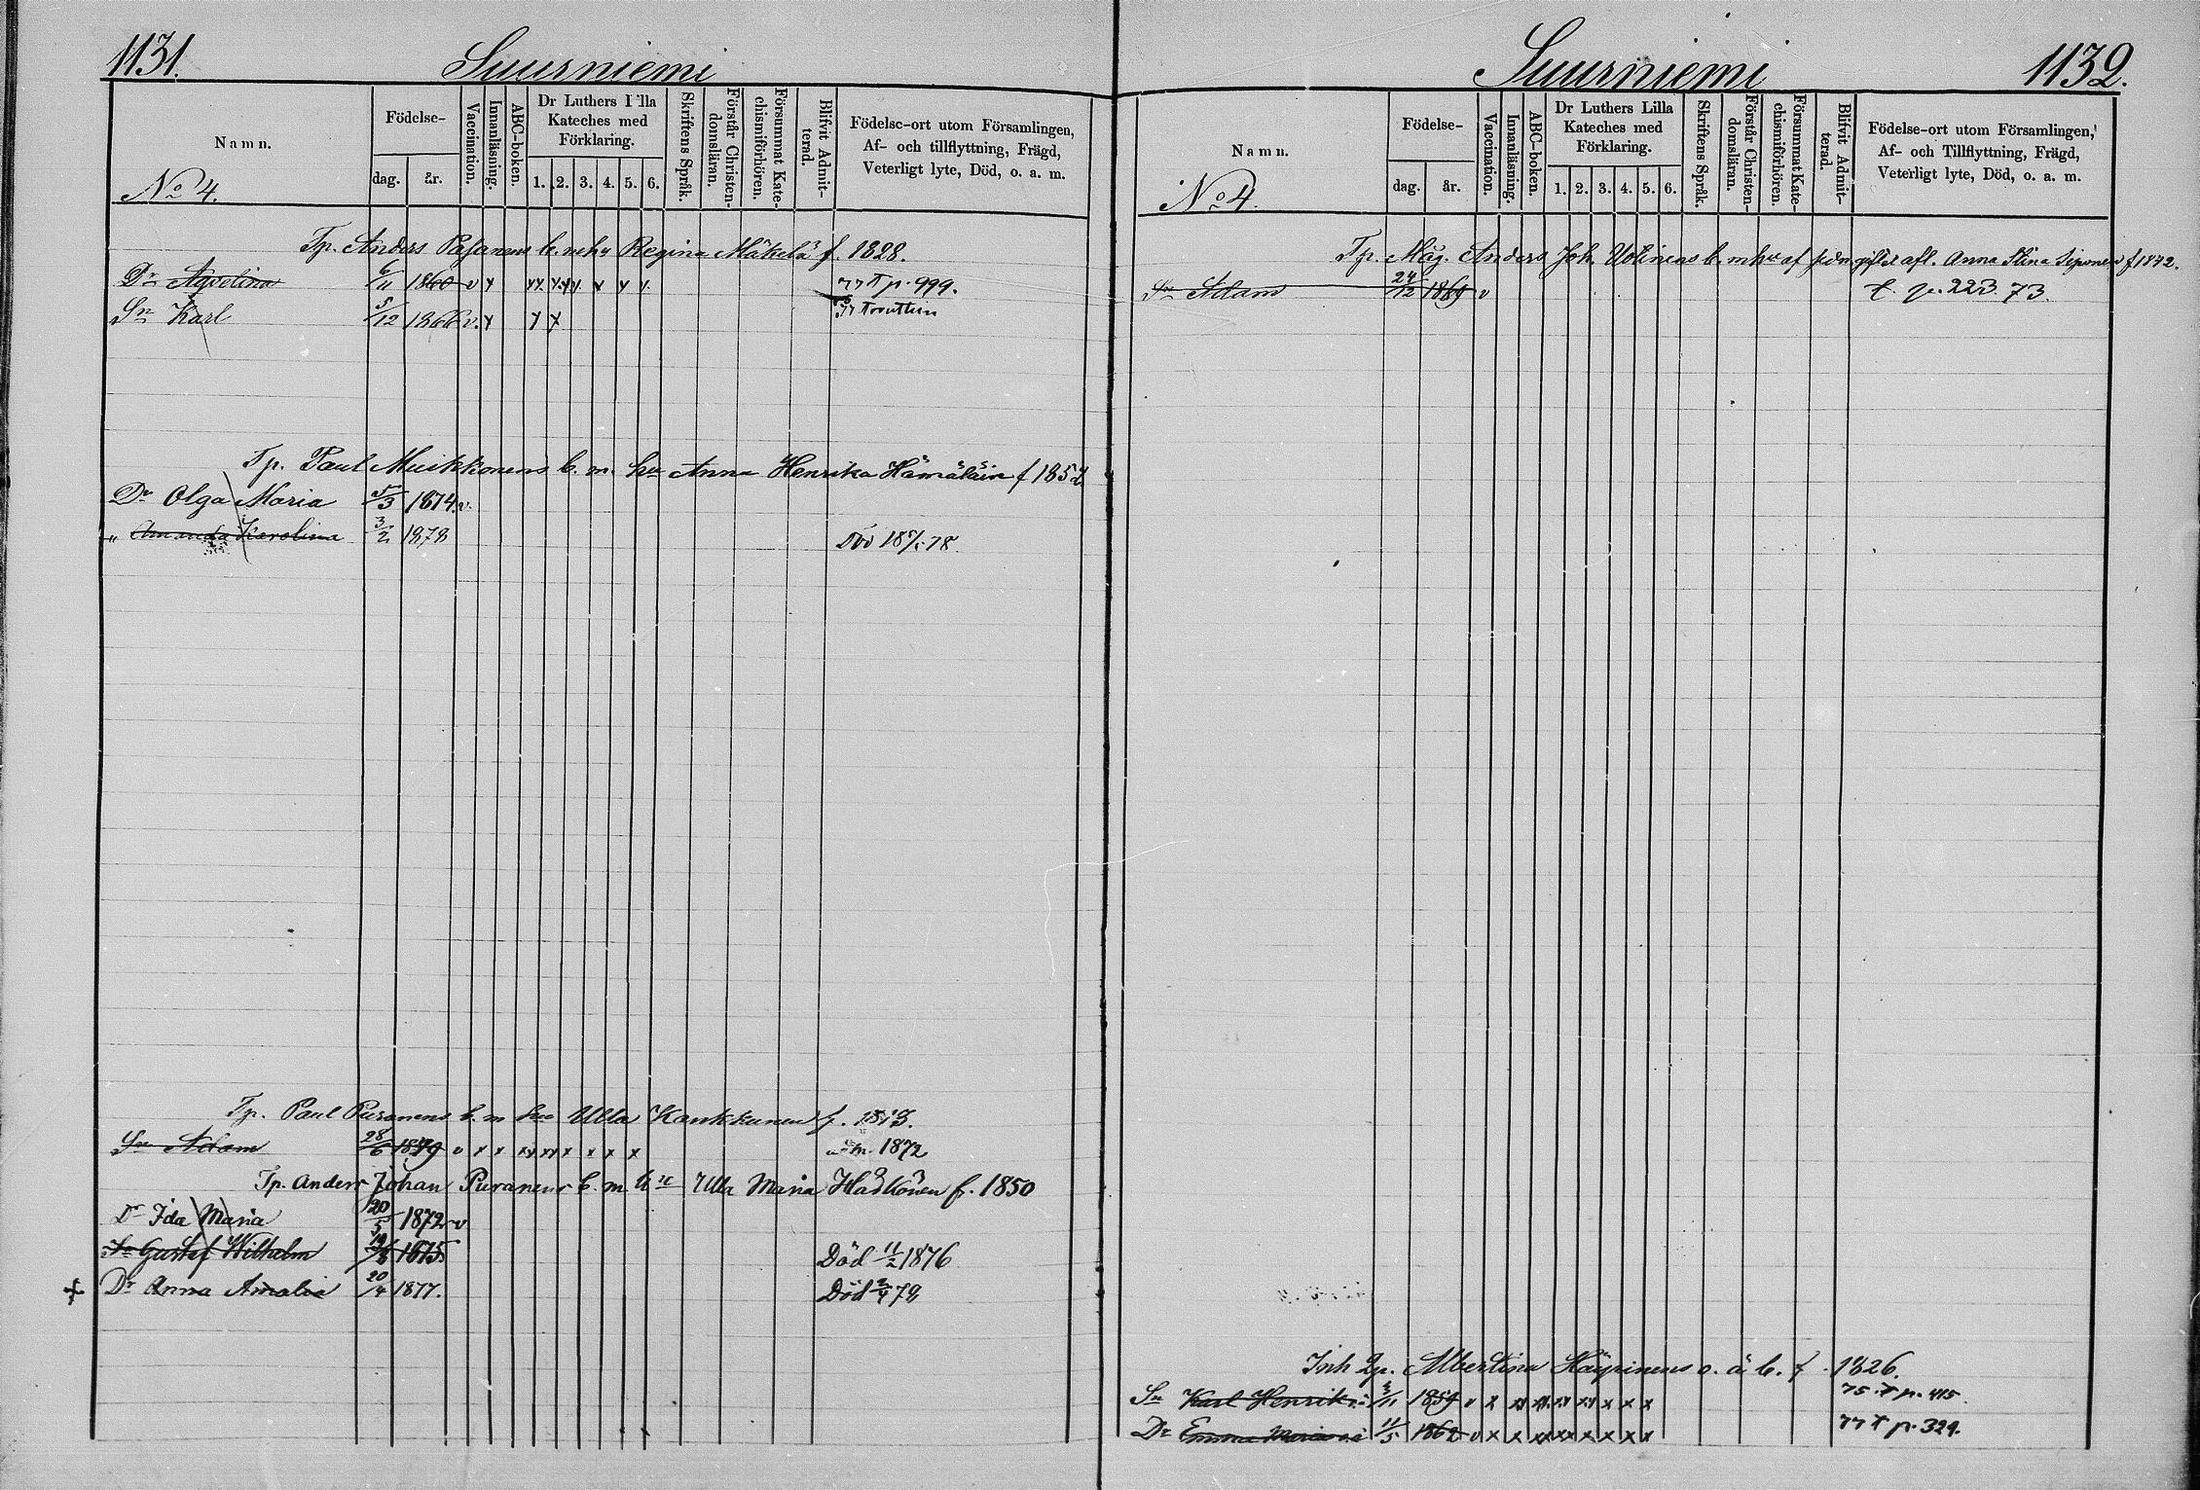 1131.
Suurniemi
Namn.
No 4.
Födelse-
dag. år.
Vaccination.
Innanläsning.
ABC-boken.
Dr Luthers Lilla
Kateches med
Förklaring.
1. 2. 3. 4. 5. 6.
Skriftens Språk.
Förstår Christen-
domsläran.
Försummat Kate-
chismiförhören.
Blifvit Admit-
terad.
Födelse-ort utom Församlingen,
Af- och tillflyttning, Frägd,
Veterligt lyte, Död, o. a. m.
Tp. Anders Pasanens b. m. hu Regina Mäkelä f. 1828.
Dr Agvelina 6/11 1860 v x xx xxx x x x 77 p. 999.
Sn Karl 5/12 1866 v. x x x
Tp. Paul Muikkonens b. m. hu Anna Henrika Hämäläin f 1852
Dr Olga Maria 5/3 1874 v.
" Amanda Karolina 3/2 1878 Död 78.
Tp. Paul Puranens b. m hu Ulla Kaukkunen f. 1813.
Sn Adam 28/6 v x x xx xx x x x x 1872
Tp. Anders Johan Puranens b. m hu Ulla Maria f. 1850
Dr Ida Maria 20/5 1872 v
Sn Gustaf Wilhelm 1875 Död 11/2 1876
+ Dr Anna Amalia 20/4 1877. Död 2/4 78
Suurniemi
1132.
Namn.
No 4.
Födelse-
dag. år.
Vaccination.
Innanläsning.
ABC-boken.
Dr Luthers Lilla
Kateches med
Förklaring.
1. 2. 3. 4. 5. 6.
Skriftens Språk.
Förstår Christen-
domsläran.
Försummat Kate-
chismiförhören.
Blifvit Admit-
terad.
Födelse-ort utom Församlingen,
Af- och Tillflyttning, Frägd,
Veterligt lyte, Död, o. a. m.
Tp. Måg. Anders Joh. Uotinens b. m hu af gifte afl. Anna Stina Siponen f 1842.
Sn Adam 24/12 1869 v p. 223. 73.
Inh Albertina Häyrinens o. ä. b. f. 1826.
Sn Karl Henrik /11 1859 v x xx xx xx xx x x x 75 p. 415
Dr Emma Maria 11/5 1862 v x x xx xx x x x x 77 p. 329.